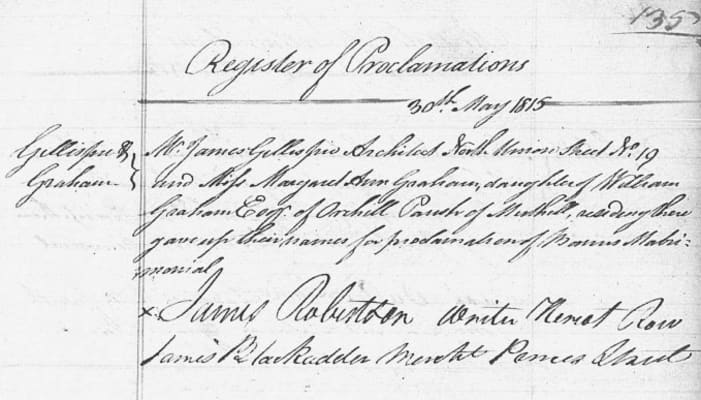 135
Register of Proclamations
30th. May 1815
Gillispie & Graham
Mr. James Gillespie Architect North Union Street No. 19
and Miss Margaret Ann Graham, daughter of William
Graham Esqr. of Orchill Parish of Muthill, residing there
gave up their names for proclamation of Banns Matri-
monial
x. James Robertson Writer Heriot Row
James Blackadder Mercht. Princes Street